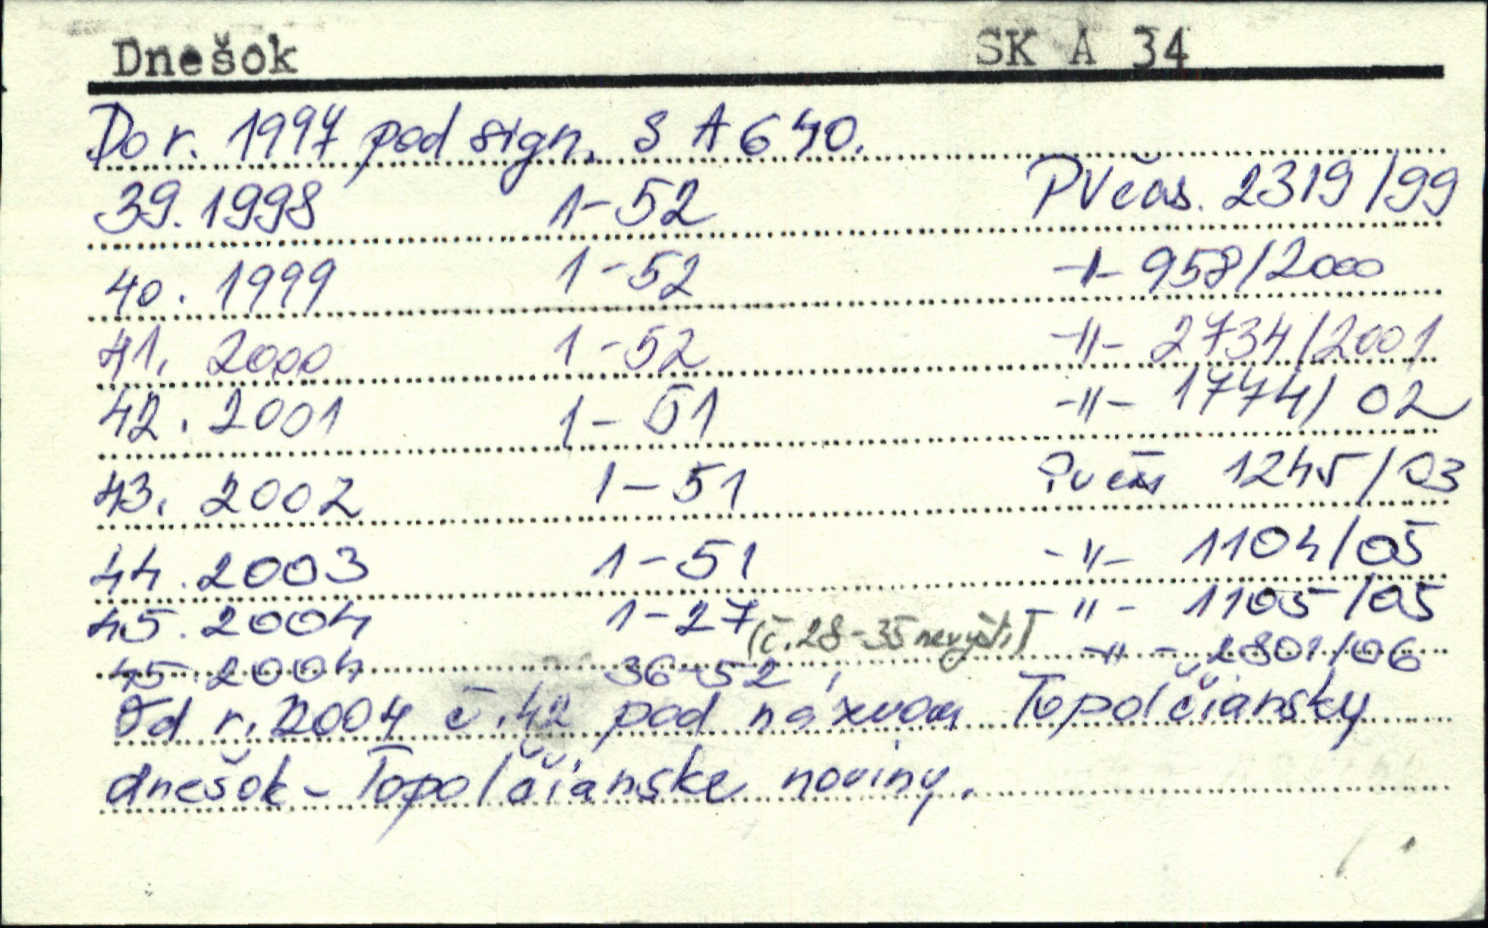 Dnešok SK A 34
Do r. 1997 pod sign. S A 640.
39. 1998 1-52 PV čas. 2319/99
40. 1999 1-52 -"- 958/2000
41. 2000 1-52 -"- 2734/2001
42. 2001 1-51 -"- 1774/02
43. 2002 1-51 PV čas 1245/03
44. 2003 1-51 -"- 1104/05
45. 2004 1-27 (č. 28-35 nevyšli) -"- 1105/05
45. 2004 36-52, -"- 2801/06
Od r. 2004 č. 42 pod názvom Topoľčiansky
dnešok - Topoľčianske noviny.